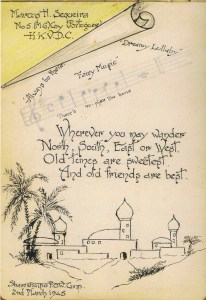 Marcus H. Sequeira
No 5 (MG) Coy (Portuguese)
H.K.V.D.C.
"Dreamy Lullaby"
"Always to there"
"Fairy Music"
"There's no place like home"
Wherever you may wander
North, South, East or West.
Old times are sweetest
And old friends are best.
Shamshuipo P.O.W. Camp.
2nd March 1945